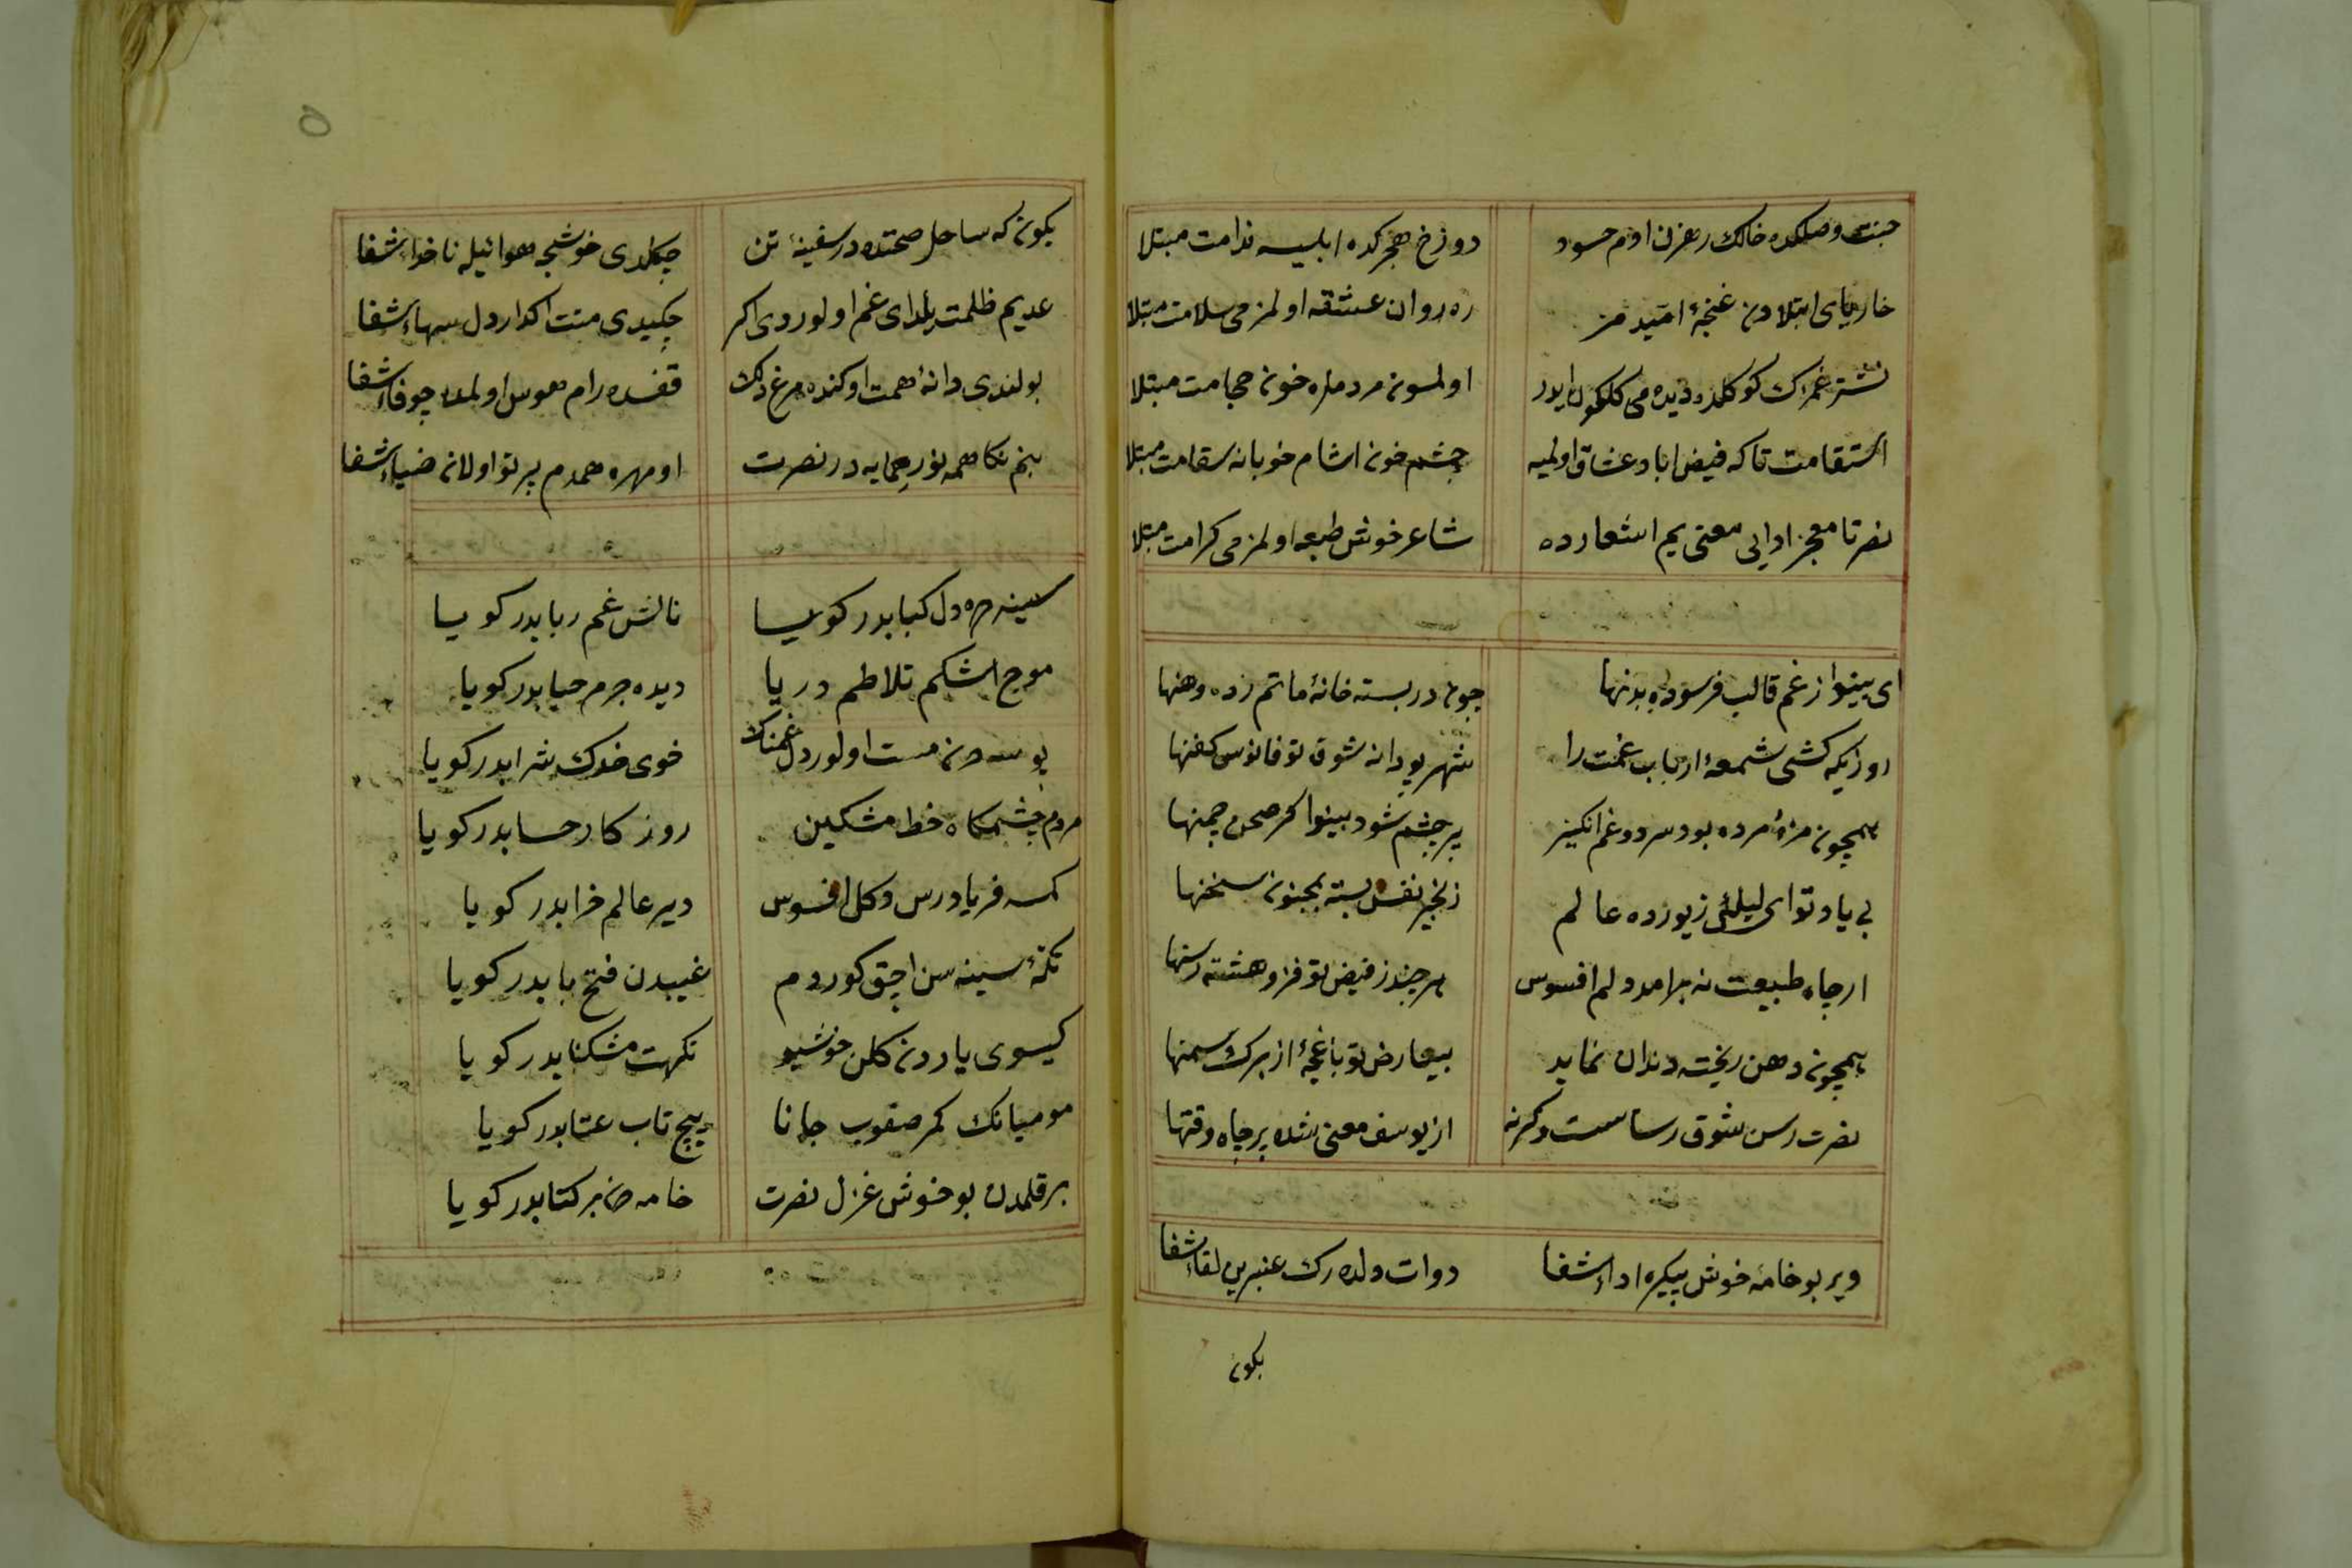 جنت وصلكده خالك رهزن اوم حسود دوزخ هجركده ابليسه ندامت مبتلا
خارپای ابتلادن غنجهٔ امید مز ره روان عشقه اولمز می سلامت مبتلا
نشتر غمزك كوكلده دیده می كلكون ایدر اولسون مردملره خون حجامت مبتلا
استقامت تاكه فیض اباد عشاق اولمیه چشم خون اشام خوبانه سقامت مبتلا
نصرتا معجز ادایی معنی یم اشعارده شاعر خوش طبعه اولمز می كرامت مبتلا
ای بینوا از غم قالب فرسوده بدنها چون در بسته خانهٔ ماتم زده وهنها
روزیكه كشی شمعهٔ ارباب غمت را شهپر پودانه شوق تو فانوس كفنها
همچون مزهٔ مرده بود سرد و غم انكیز بر چشم شود بینوا كر صحن چمنها
بی یاد تو ای لیلئ زیور ده عالم زنجیر نفس بسته بمجنون سخنها
ار چاه طبیعت نه برامد دلم افسوس هر چند ز فیض تو فرو هشته رسنها
همچون دهن ریخته دندان نماید بیعارض تو باغچهٔ از برك سمنها
نصرت رسن شوق رساست وكرنه از یوسف معنی شده پر چاه وقتها
ویر بو خامهٔ خوش پیكره اداء شفا دوات دلده رك عنبرین لقاء شفا
بكون
بكون كه ساحل صحتده در سفینهٔ تن چكلدی خوشجه هوائیله ناخداء شفا
عدیم ظلمت یلدای غم اولوردی اكر چكیدی منت اكدار دل سهاء شفا
بولندی دانهٔ همت اوكنده مرغ دلك قفسده رام هوس اولمده چو فاء شفا
بنم نكاهمه نور حمایه در نصرت او مهره همدم پرتو اولان ضیاء شفا
سینه مه دل كبابدر كویا نالش غم ربابدر كویا
موج اشكم تلاطم دریا دیده جرم حبابدر كویا
بوسه دن مست اولور دل غمناك خوی خدك شرابدر كویا
مردم چشمكاه خط مشكین روز كار حسابدر كویا
كمسه فریاد رس دكل افسوس دیر عالم خرابدر كویا
تكمهٔ سینه سن اچق كوردم غیبدن فتح بابدر كویا
كیسوی یاردن كلن خوشبو نكهت مشكنابدر كویا
مو میانك كمر صقوب جانا پیچ تاب عتابدر كویا
بر قلمدن بو خوش غزل نصرت خامه دن بر كتابدر كویا